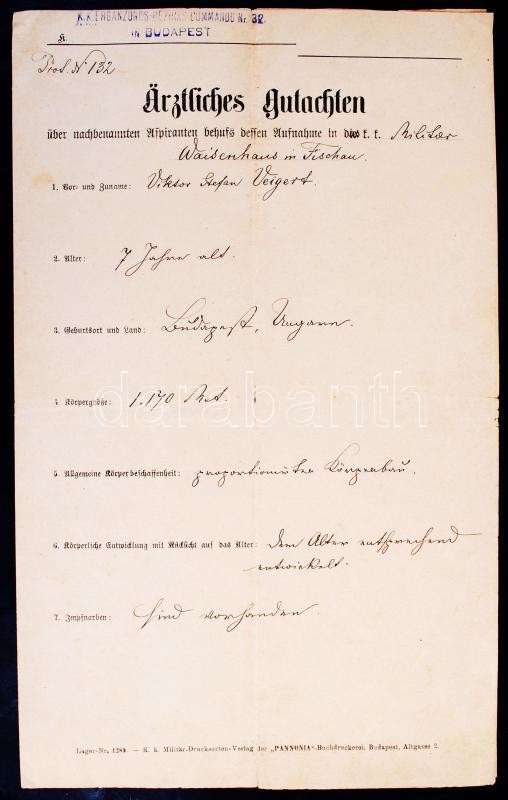 K. K. ERGÄNZUNGS-BEZIRKS COMMANDO Nr. 32.
in BUDAPEST
K.
Prot. N 132
Ärztliches Gutachten
über nachbenannten Aspiranten behufs dessen Aufnahme in das k. k. Militär
Waisenhaus in Fischau.
1. Vor- und Zuname: Viktor Stefan Veigert.
2. Alter: 7 Jahre alt.
3. Geburtsort und Land: Budapest, Ungarn.
darabanth
4. Körpergröße: 1.170 Met.
5. Allgemeine Körperbeschaffenheit: proportionirter Körperbau.
6. Körperliche Entwicklung mit Rücksicht auf das Alter: dem Alter entsprechend
entwickelt.
7. Impfnarben: sind vorhanden.
Lager-Nr. 1280. — K. k. Militär-Drucksorten-Verlag der „PANNONIA"-Buchdruckerei, Budapest, Altgasse 2.